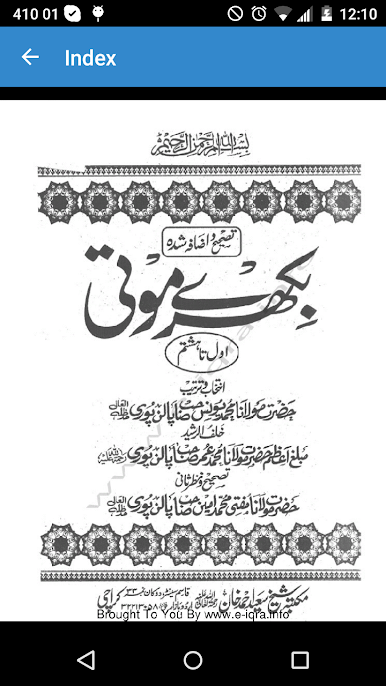 410 01 12:10
Index
بسم الله الرحمن الرحيم
تصحیح و اضافہ شدہ
بکھرے موتی
اول تا ہشتم
انتخاب و ترتیب
حضرت مولانا محمد یونس صاحب پالن پوری
خلف الرشید
مبلغ اعظم حضرت مولانا محمد عمر صاحب پالن پوری
تصحیح و نظر ثانی
حضرت مولانا مفتی محمد امین صاحب پالن پوری
مکتبہ شیخ سعید احمد خان قاسم سینٹر دوکان نمبر اردو بازار کراچی
Brought To You By www.e-iqra.info